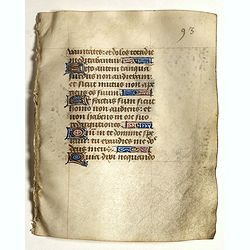 93
vanitates: et dolos tota die
meditabantur
Ego autem tanqua
surdus non audiebam:
et sicut mutus non ape
riens os suum
Et factus sum sicut
homo non audiens: et
non habens in ore suo
redargutiones
Qm in te domine spe
raui: tu exaudies me do
deus meus
Quia dixi nequando